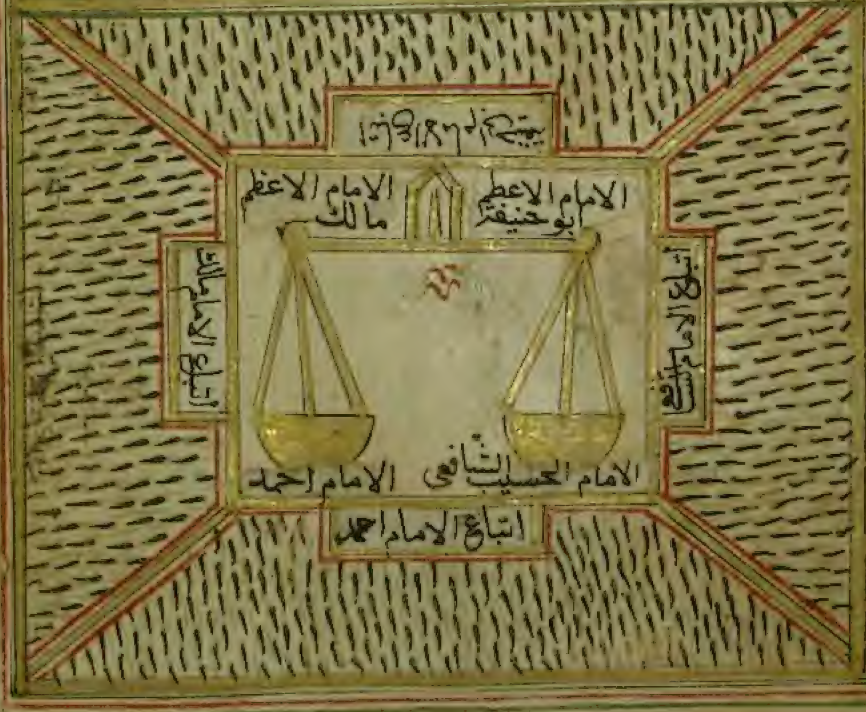 اتباع الامام
الامام الاعظم
ابو حنيفة
الامام الاعظم
مالك
اتباع الامام الشافعي
اتباع الامام مالك
الامام الحسيب الشافعي
الامام احمد
اتباع الامام احمد